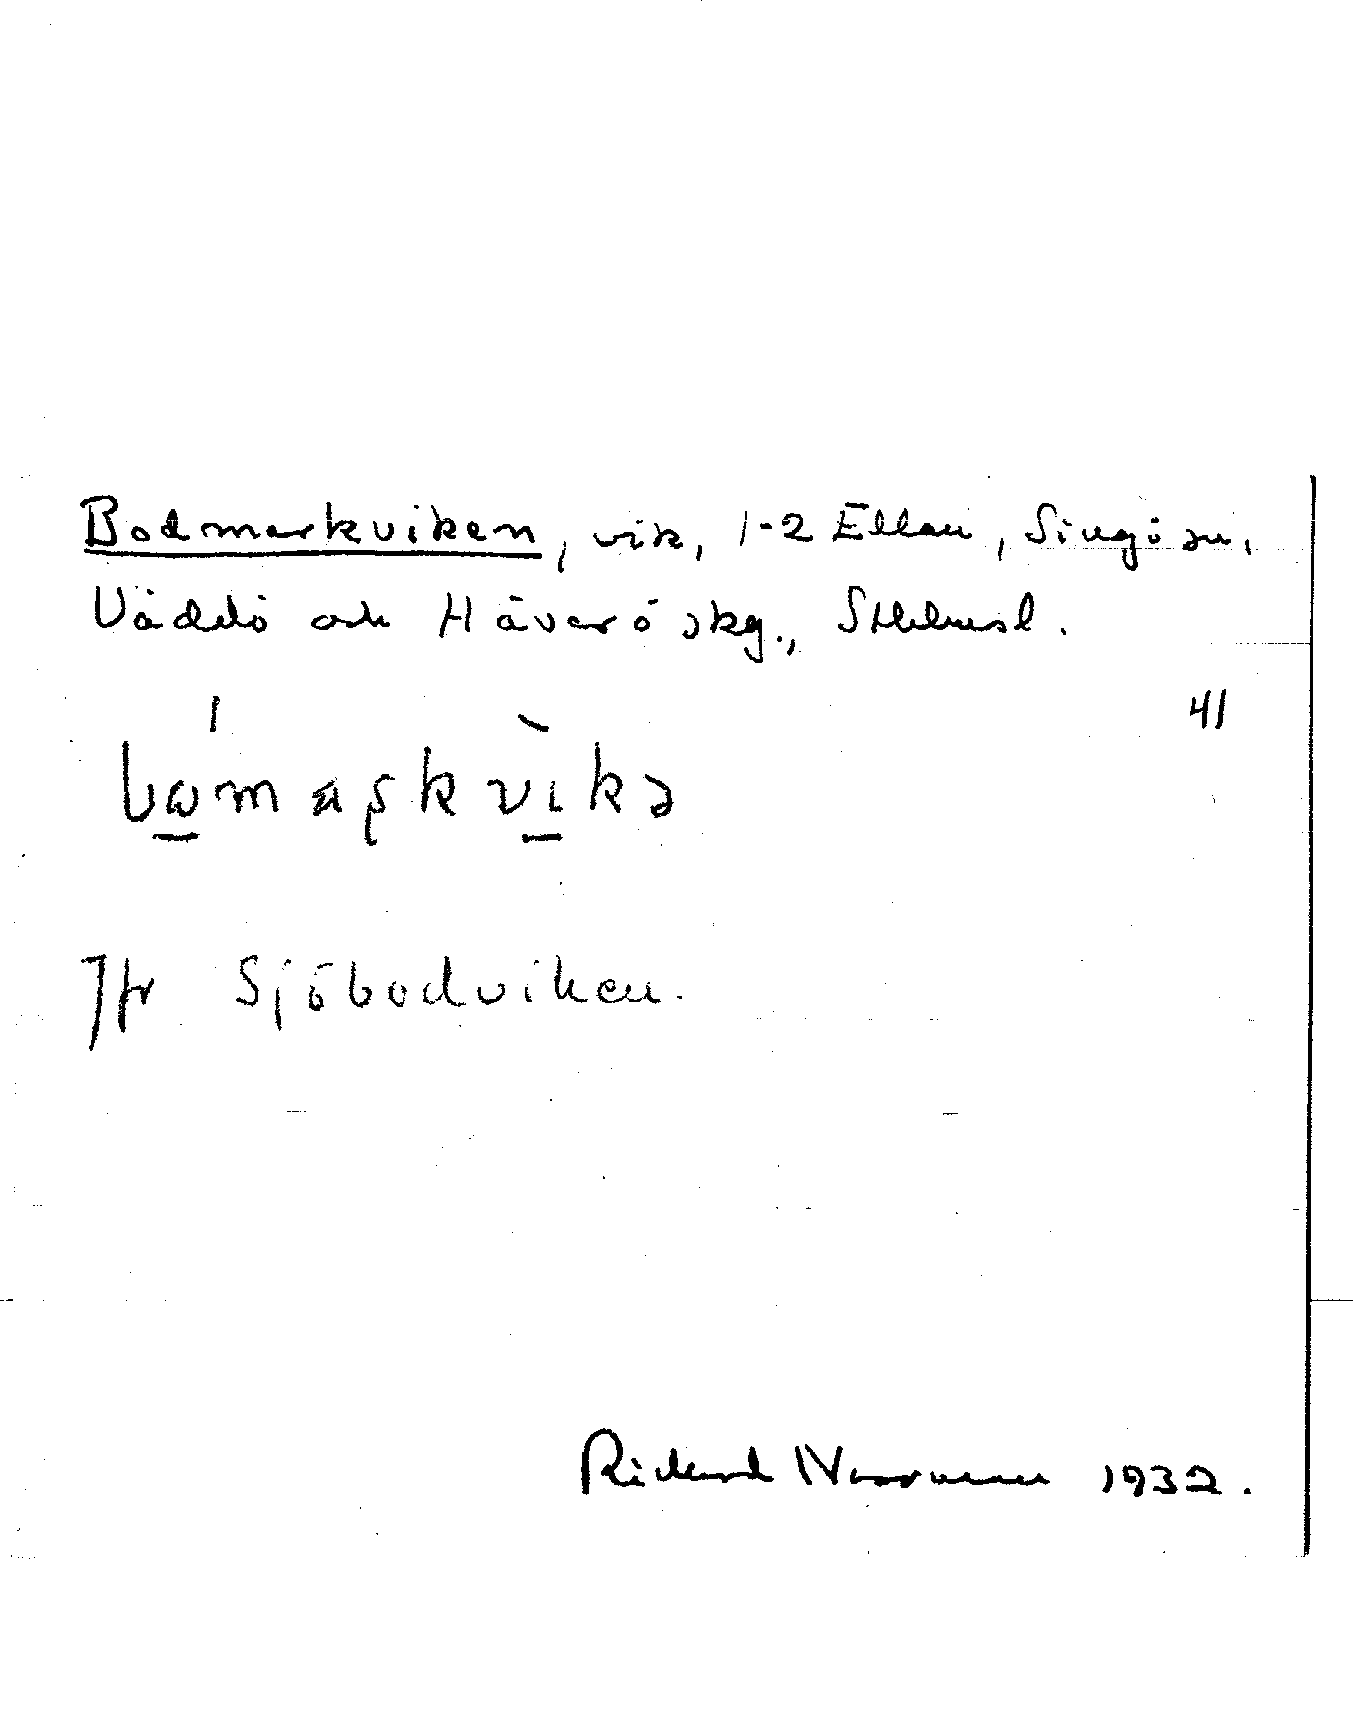 Bodmarkviken, vik, 1-2 Ellan, Singö sn.
Väddö och Häverö skg., Sthlmsl.
41
Jfr Sjöbodviken.
Rickard 1932.